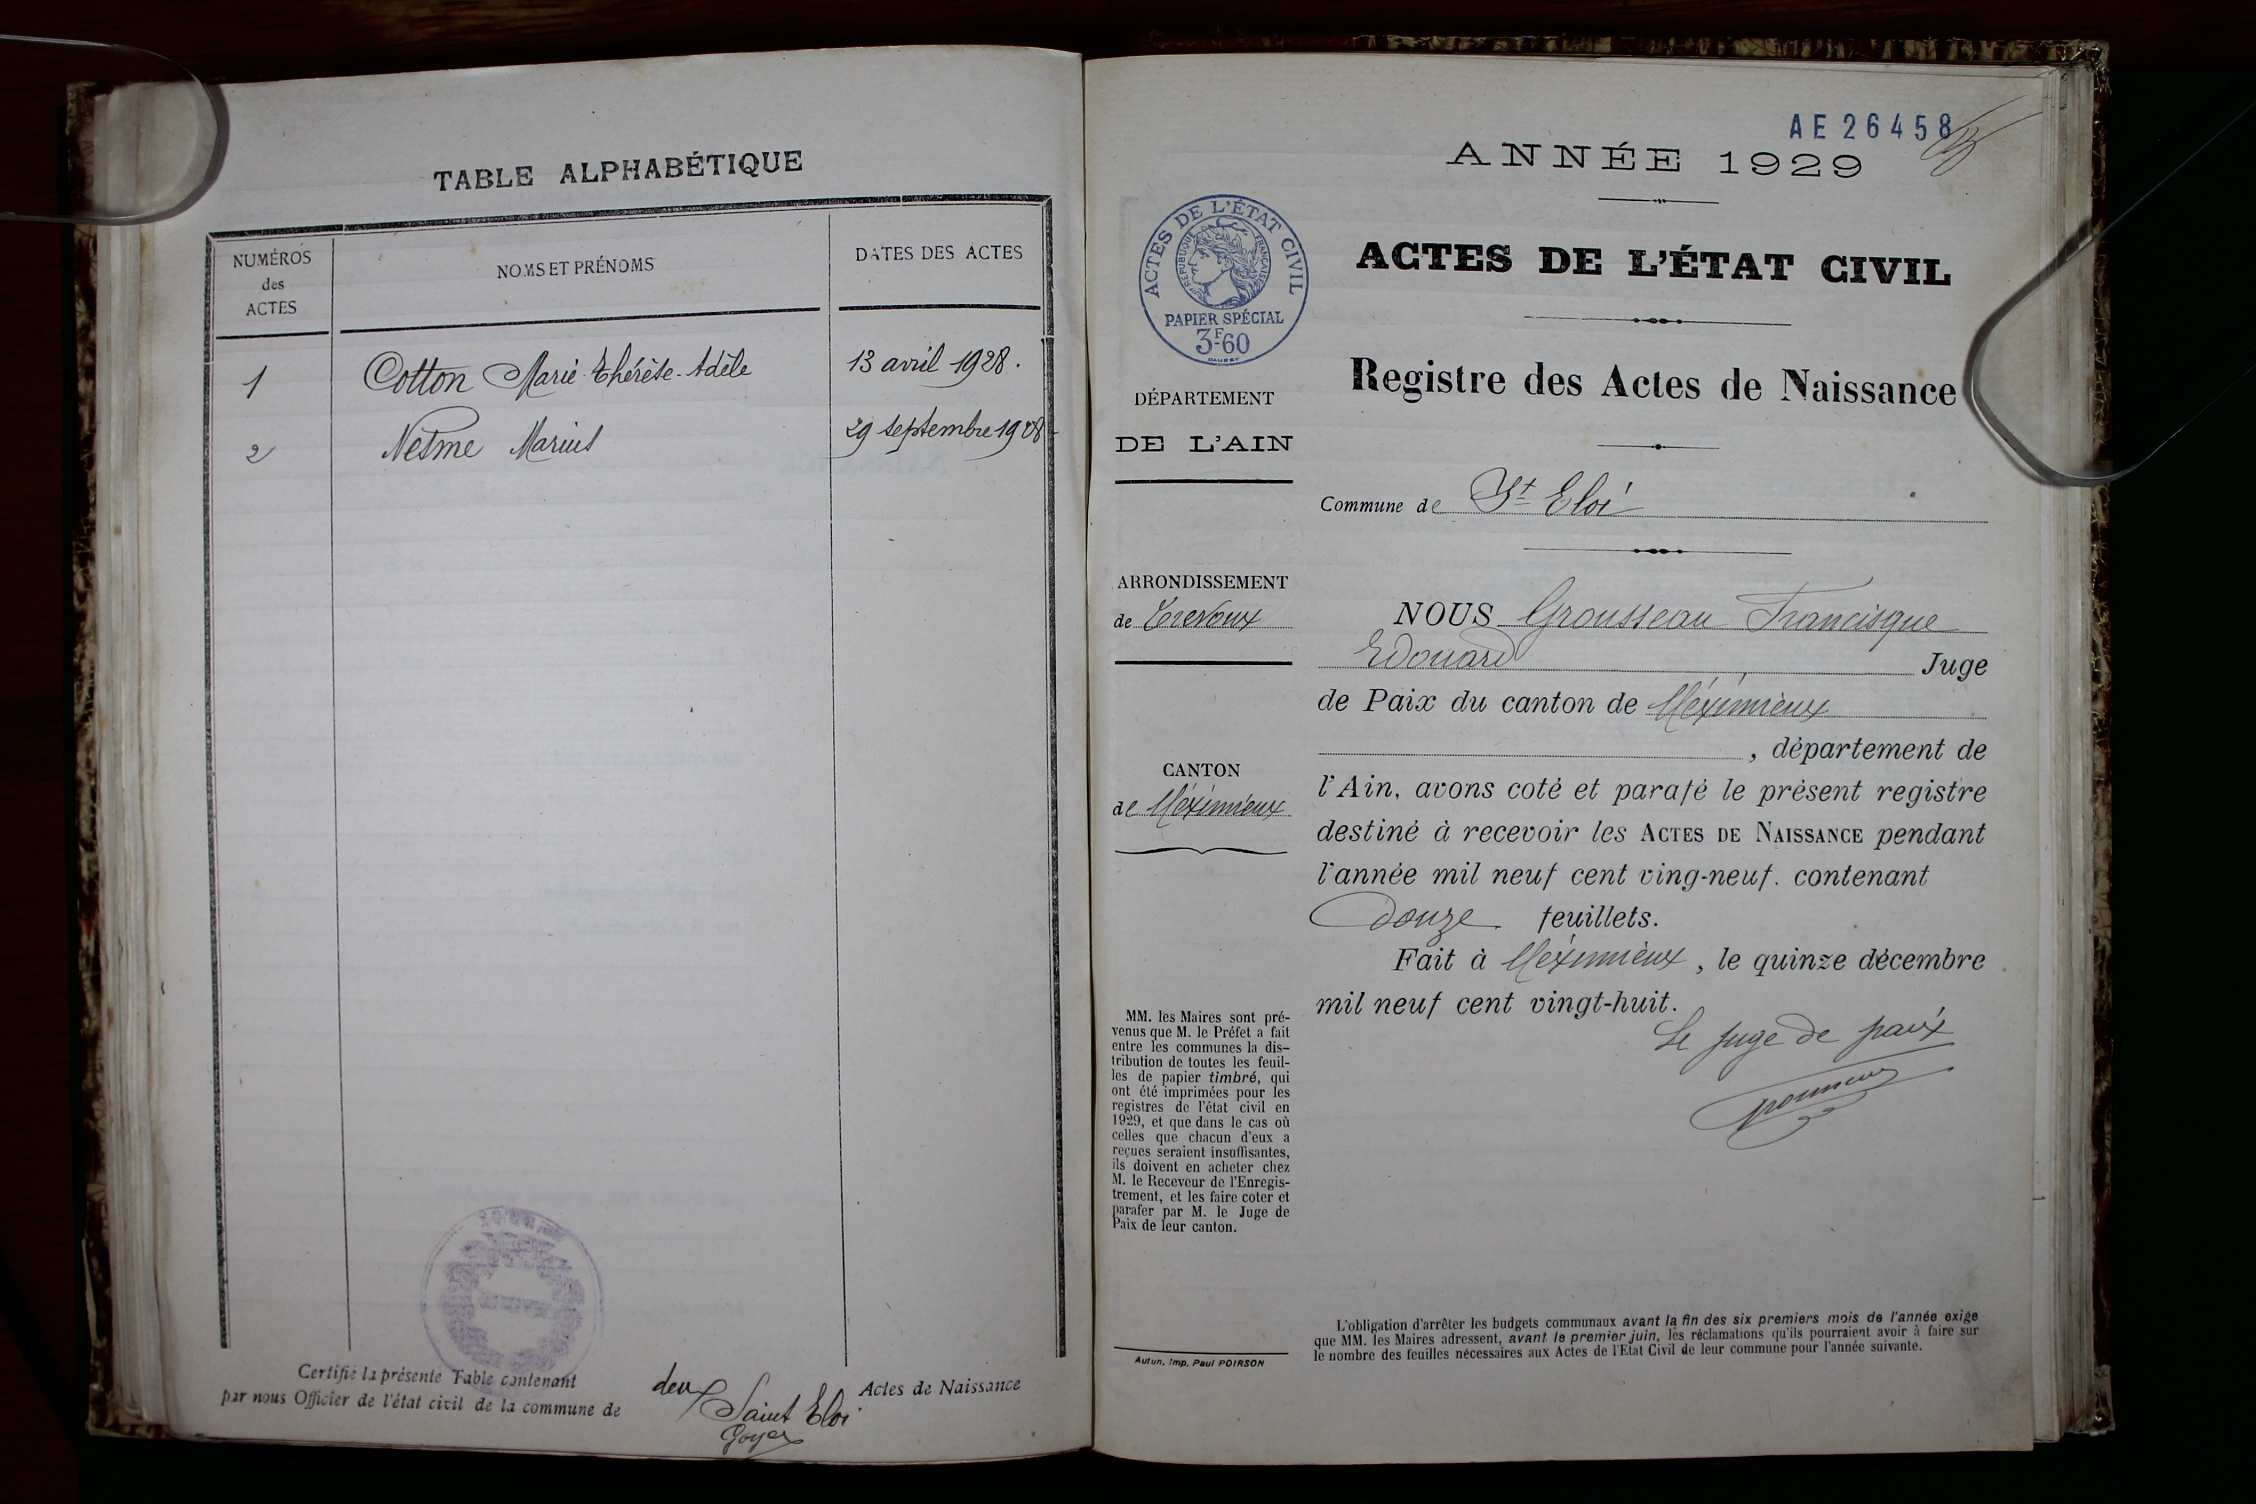 TABLE ALPHABÉTIQUE
NUMÉROS
des
ACTES
NOMS ET PRÉNOMS
DATES DES ACTES
1 Cotton Marie-Thérèse-Adèle 13 avril 1928.
2 Nesme Marius 29 septembre 1928
Certifié la présente Table contenant deux Actes de Naissance
par nous Officier de l'état civil de la commune de Saint Eloi
Goyer
AE 26458
ANNÉE 1929
ACTES DE L'ÉTAT CIVIL
REPUBLIQUE FRANÇAISE
PAPIER SPÉCIAL
3F60
ACTES DE L'ÉTAT CIVIL
Registre des Actes de Naissance
DÉPARTEMENT
DE L'AIN
Commune de St Eloi
ARRONDISSEMENT
de Trevoux
CANTON
de Méximieux
NOUS Grousseau Francisque
Edouard Juge
de Paix du canton de Méximieux
, département de
l'Ain, avons coté et parafé le présent registre
destiné à recevoir les ACTES DE NAISSANCE pendant
l'année mil neuf cent ving-neuf. contenant
douze feuillets.
Fait à Méximieux, le quinze décembre
mil neuf cent vingt-huit.
Le juge de paix
MM. les Maires sont pré-
venus que M. le Préfet a fait
entre les communes la dis-
tribution de toutes les feuil-
les de papier timbré, qui
ont été imprimées pour les
registres de l'état civil en
1929, et que dans le cas où
celles que chacun d'eux a
reçues seraient insuffisantes,
ils doivent en acheter chez
M. le Receveur de l'Enregis-
trement, et les faire coter et
parafer par M. le Juge de
Paix de leur canton.
Autun, Imp. Paul POIRSON
L'obligation d'arrêter les budgets communaux avant la fin des six premiers mois de l'année exige
que MM. les Maires adressent, avant le premier juin, les réclamations qu'ils pourraient avoir à faire sur
le nombre des feuilles nécessaires aux Actes de l'Etat Civil de leur commune pour l'année suivante.